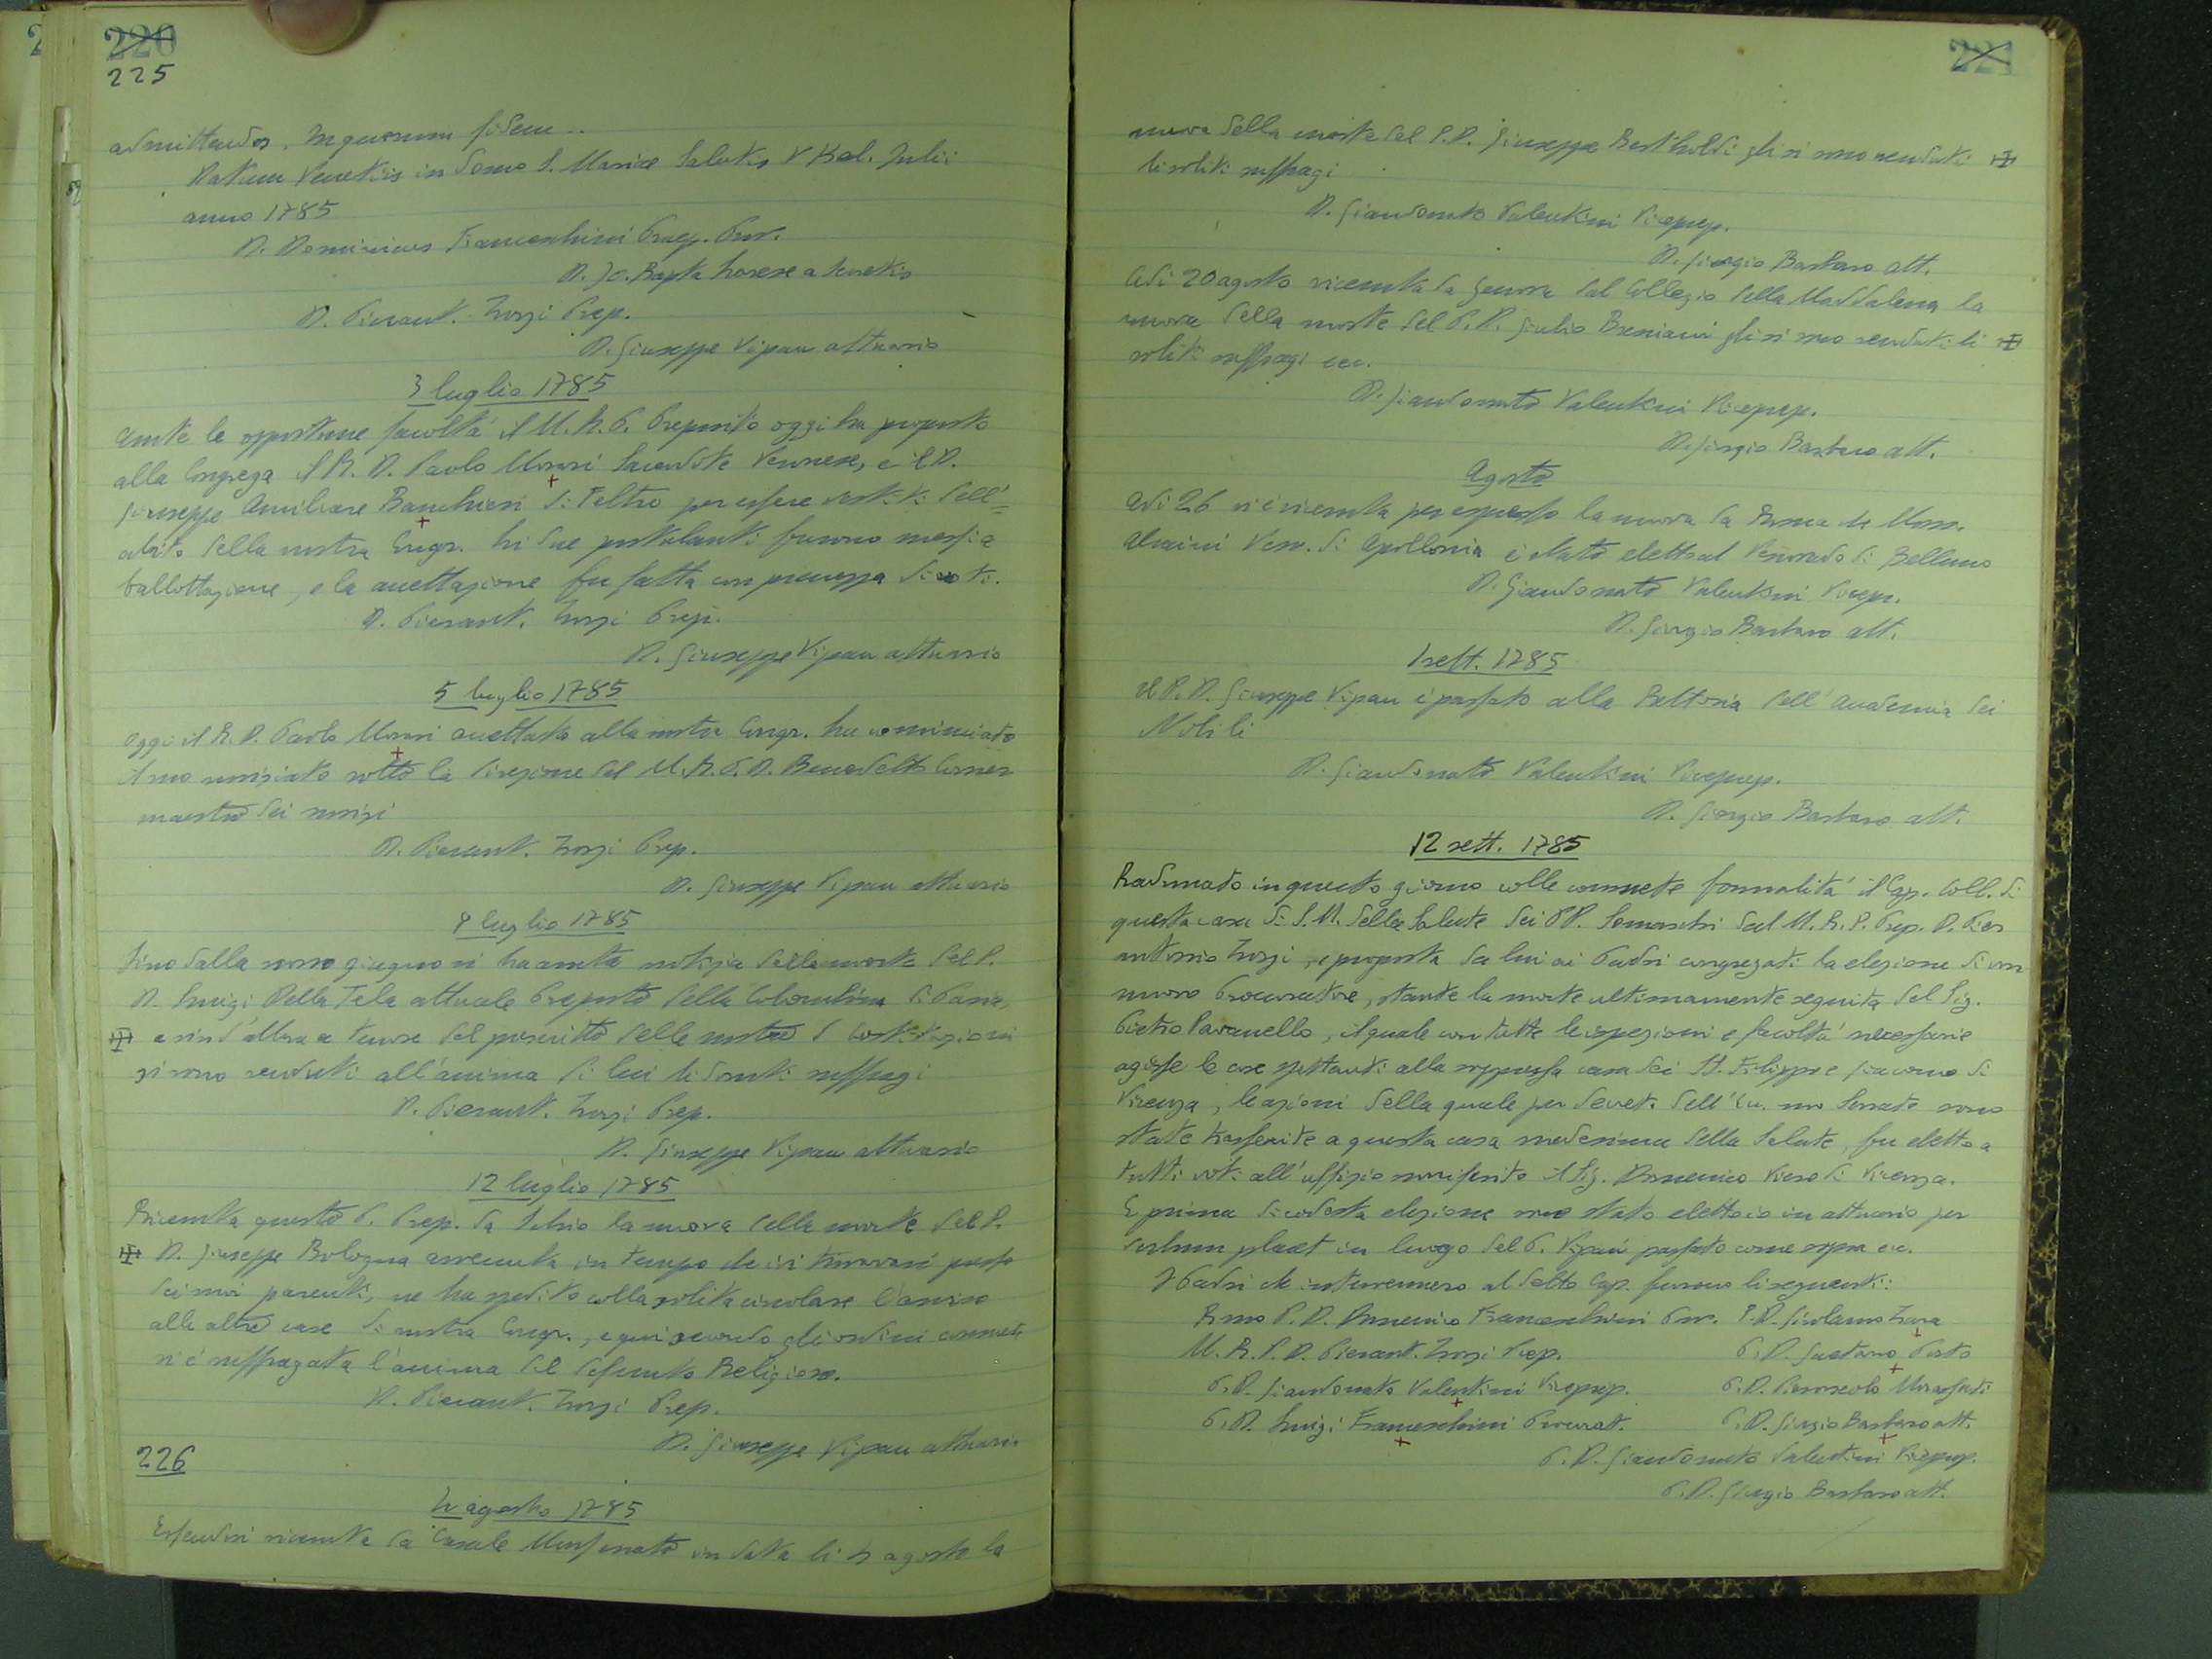 220
225
admittendos. In quorum fidem ..
Datum Venetiis in Domo S. Mariae Salutis V Kal. Julii
anno 1785
D. Dominicus Franceschini Praep. Prov.
D. Jo. Bapta a Venetiis
D. Pierant. Zorzi Prep.
D. Giuseppe Vipau attuario
3 luglio 1785
avute le opportune facoltà il M. R. P. Preposito oggi ha proposto
alla Congrega il R. D. Paolo Morari Sacerdote Veronese, e il D.
Giuseppe Banchieri di Feltre per essere vestiti dell'
abito della nostra Congr. Li due postulanti furono messi a
ballottazione, e la accettazione fu fatta con pienezza di voti.
D. Pierant. Zorzi Prep.
D. Giuseppe Vipau attuario
5 luglio 1785
Oggi il R. D. Paolo Morari accettato alla nostra Congr. ha cominciato
il suo noviziato sotto la direzione del M. R. P. D. Benedetto Corner
maestro dei novizi
D. Pierant. Zorzi Prep.
D. Giuseppe Vipau attuario
8 luglio 1785
Sino dalla scorso giugno si ha avuta notizia della morte del P.
D. Luigi Della Tela attuale Preposito della Colombina di Pavia,
e sin d'allora a tenore del prescritto delle nostre S. Costituzioni
si sono renduti all'anima di lui li dovuti suffragi
D. Pierant. Zorzi Prep.
D. Giuseppe Vipau attuario
12 luglio 1785
Ricevuta questo P. Prep. da la nuova della morte del P.
D. Giuseppe Bologna avvenuta in tempo che ivi trovavasi presso
dei suoi parenti, ne ha spedito colla solita circolare l'avviso
alle altre case di nostra Congr., e qui secondo gli ordini consueti
si è suffragata l'anima del defunto Religioso.
D. Pierant. Zorzi Prep.
D. Giuseppe Vipau attuario
226
agosto 1785
Essendosi ricevuta da Casale Monferrato in data li agosto la
221
nuova della morte del P. D. Giuseppe Bertholdi gli si sono renduti
li soliti suffragi
D. Giandonato Valentini Viceprep.
D. Giorgio Barbaro att.
Adì 20 agosto ricevuta da Genova dal Collegio della Maddalena la
nuova della morte del P. D. Giulio gli si sono renduti li
soliti suffragi ecc.
D. Giandonato Valentini Viceprep.
D. Giorgio Barbaro att.
Agosto
Adì 26 si è ricevuta per espresso la nuova da Roma che Mons.
Alcaini Vesc. di Apollonia è stato eletto al Vescovado di Belluno
D. Giandonato Valentini Vicepr.
D. Giorgio Barbaro att.
1 sett. 1785
Il P. D. Giuseppe Vipau è passato alla Rettoria dell'Accademia dei
Nobili
D. Giandonato Valentini Viceprep.
D. Giorgio Barbaro att.
12 sett. 1785
Radunato in questo giorno colle consuete formalità il Cap. Coll. di
questa casa di S. M. della Salute dei PP. Somaschi dal M. R. P. Prep. D. Pier
antonio Zorzi, e proposta da lui ai Padri congregati la elezione di un
nuovo Procuratore, stante la morte ultimamente seguita del Sig.
Pietro Pavanello, il quale con tutte le ispezioni e facoltà necessarie
agisse le cose spettanti alla soppressa casa dei SS. Filippo e Giacomo di
Vicenza, le azioni della quale per decreto dell'Ecc.mo Senato sono
state trasferite a questa casa medesima della Salute, fu eletto a
tutti voti all'uffizio surriferito il Sig. Domenico Viero di Vicenza.
E prima di codesta elezione sono stato eletto io in attuario per
verbum placet in luogo del P. Vipau passato come sopra ecc.
I Padri che intervennero al detto Cap. furono li seguenti:
Rmo P. D. Domenico Franceschini Prov. P. D. Girolamo Zara
M. R. P. D. Pierant. Zorzi Prep. P. D. Gaetano Porto
P. D. Giandonato Valentini Viceprep. P. D.
P. D. Luigi Franceschini Procurat. P. D. Giorgio Barbaro att.
P. D. Giandonato Valentini Viceprep.
P. D. Giorgio Barbaro att.